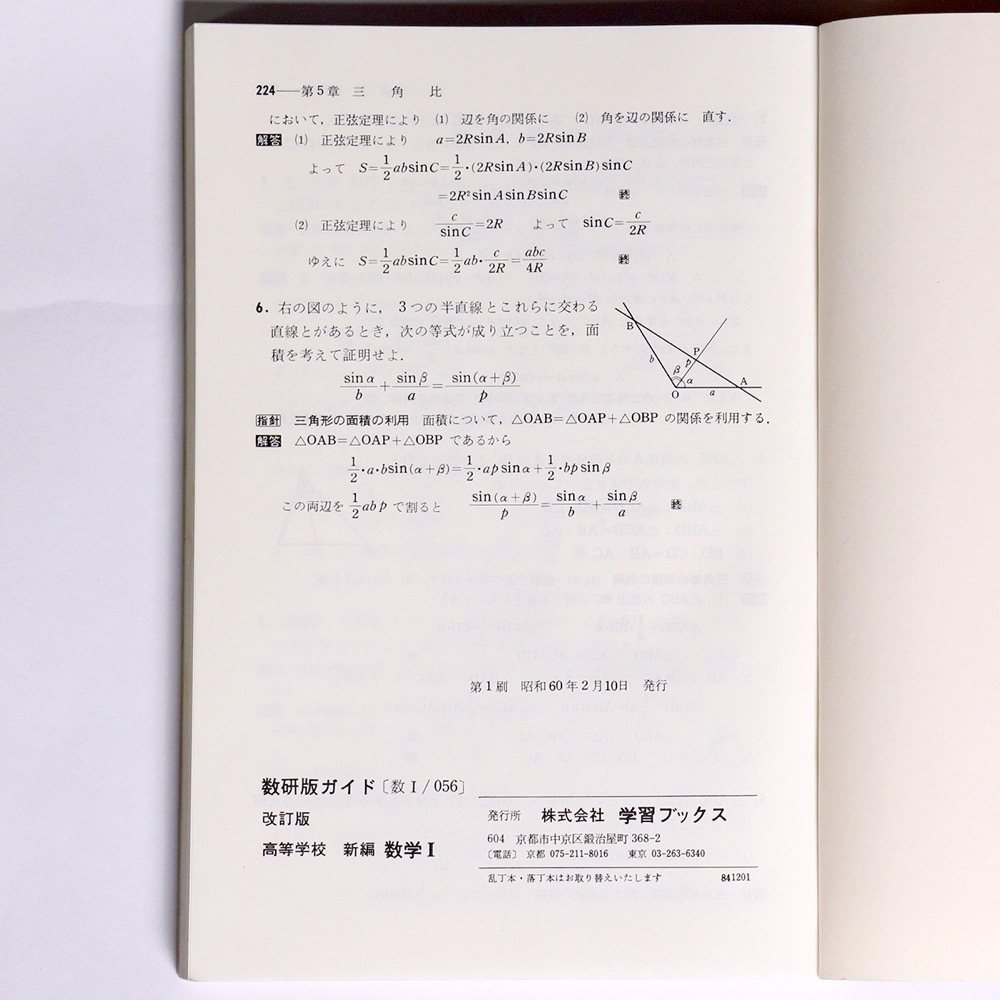 224——第5章 三 角 比
において，正弦定理により (1) 辺を角の関係に (2) 角を辺の関係に 直す.
解答 (1) 正弦定理により a=2RsinA, b=2RsinB
よって S=1/2absinC=1/2・(2RsinA)・(2RsinB)sinC
=2R²sinAsinBsinC 終
(2) 正弦定理により c/sinC=2R よって sinC=c/2R
ゆえに S=1/2absinC=1/2ab・c/2R=abc/4R 終
6. 右の図のように， 3つの半直線とこれらに交わる
直線とがあるとき，次の等式が成り立つことを，面
積を考えて証明せよ.
sinα/b+sinβ/a=sin(α+β)/p
B
b
P
p
β
α
O
a
A
指針 三角形の面積の利用 面積について，△OAB=△OAP+△OBP の関係を利用する.
解答 △OAB=△OAP+△OBP であるから
1/2・a・bsin(α+β)=1/2・apsinα+1/2・bpsinβ
この両辺を 1/2abp で割ると sin(α+β)/p=sinα/b+sinβ/a 終
第1刷 昭和60年2月10日 発行
数研版ガイド〔数Ⅰ/056〕
改訂版
高等学校 新編 数学Ⅰ
発行所 株式会社 学習ブックス
604 京都市中京区鍛治屋町368-2
〔電話〕京都 075-211-8016 東京 03-263-6340
乱丁本・落丁本はお取り替えいたします 841201